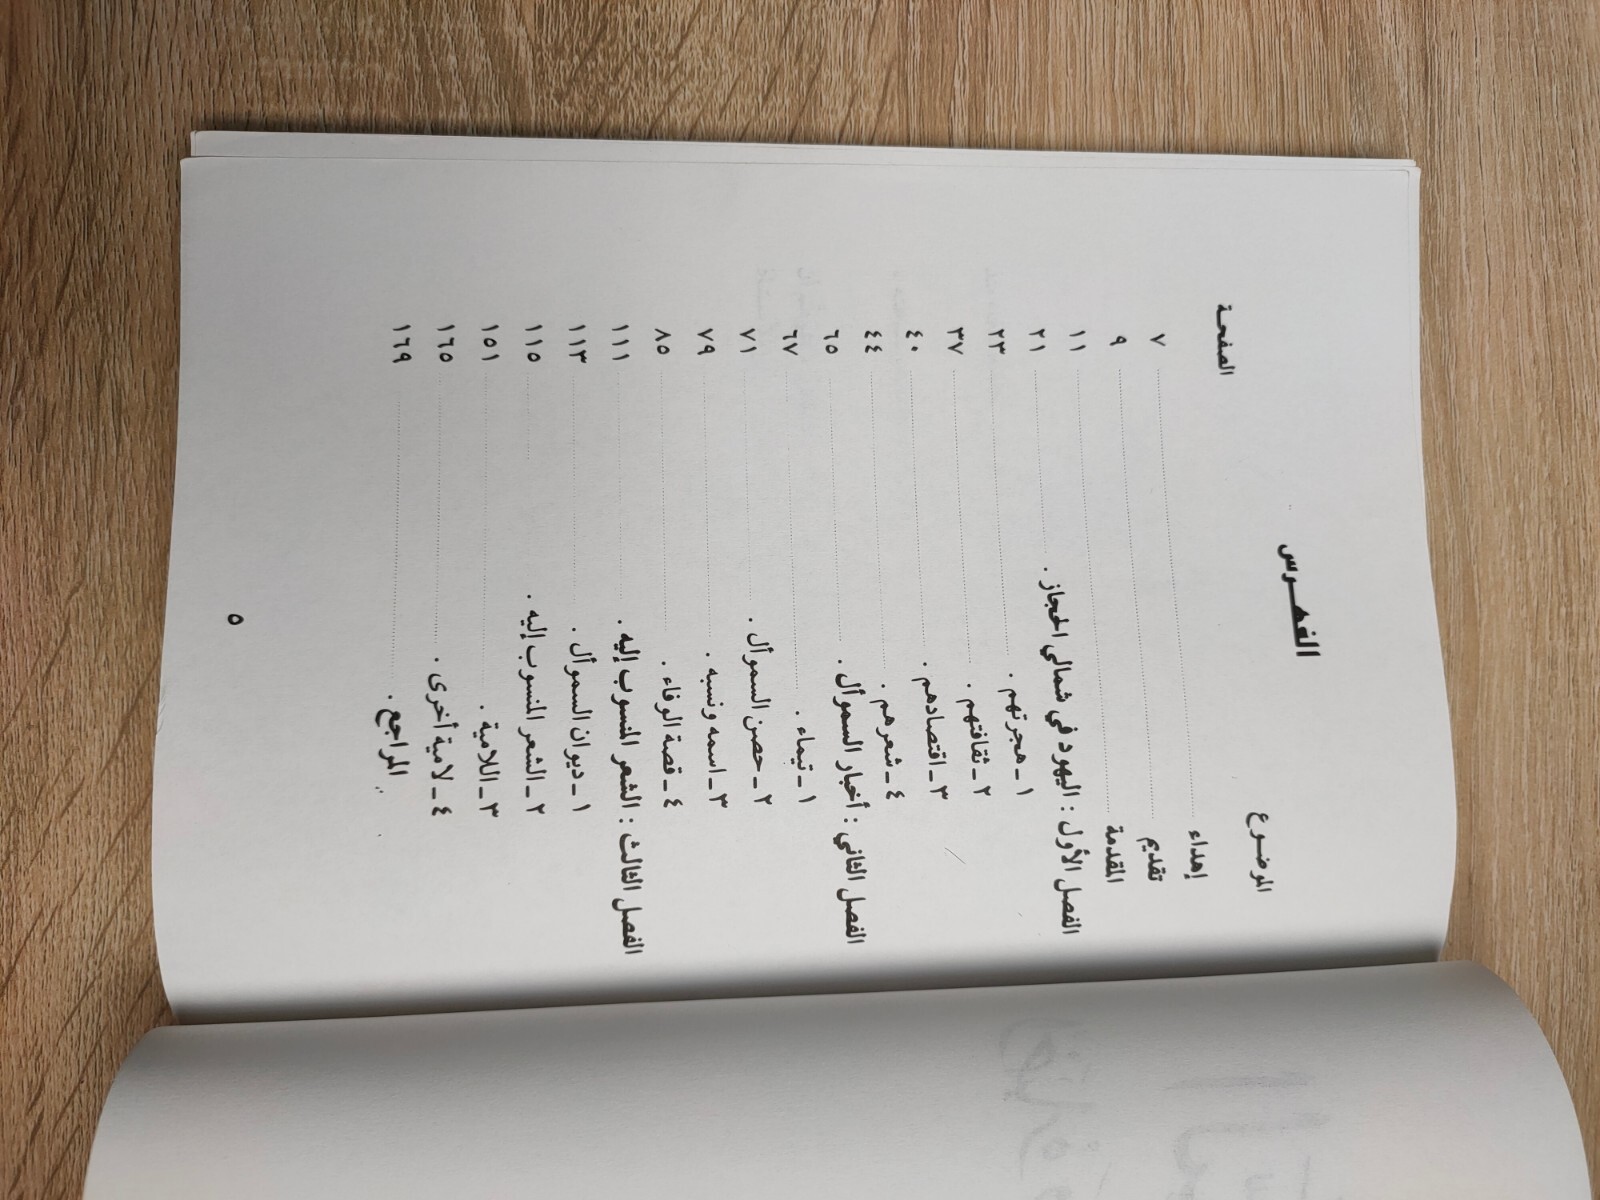 الفهـــرس
الموضـوع الصفحـة
إهداء ٧
تقديم ٩
المقدمة ١١
الفصل الأول : اليهود في شمالي الحجاز . ٢١
١ ـ هجرتهم . ٢٣
٢ ـ ثقافتهم . ٣٧
٣ ـ اقتصادهم . ٤٠
٤ ـ شعرهم . ٤٤
الفصل الثاني : أخبار السموأل . ٦٥
١ ـ تيماء . ٦٧
٢ ـ حصن السموأل . ٧١
٣ ـ اسمه ونسبه . ٧٩
٤ ـ قصة الوفاء . ٨٥
الفصل الثالث : الشعر المنسوب إليه . ١١١
١ ـ ديوان السموأل . ١١٣
٢ ـ الشعر المنسوب إليه . ١١٥
٣ ـ اللامية . ١٥١
٤ ـ لامية أخرى . ١٦٥
المراجع . ١٦٩
٥